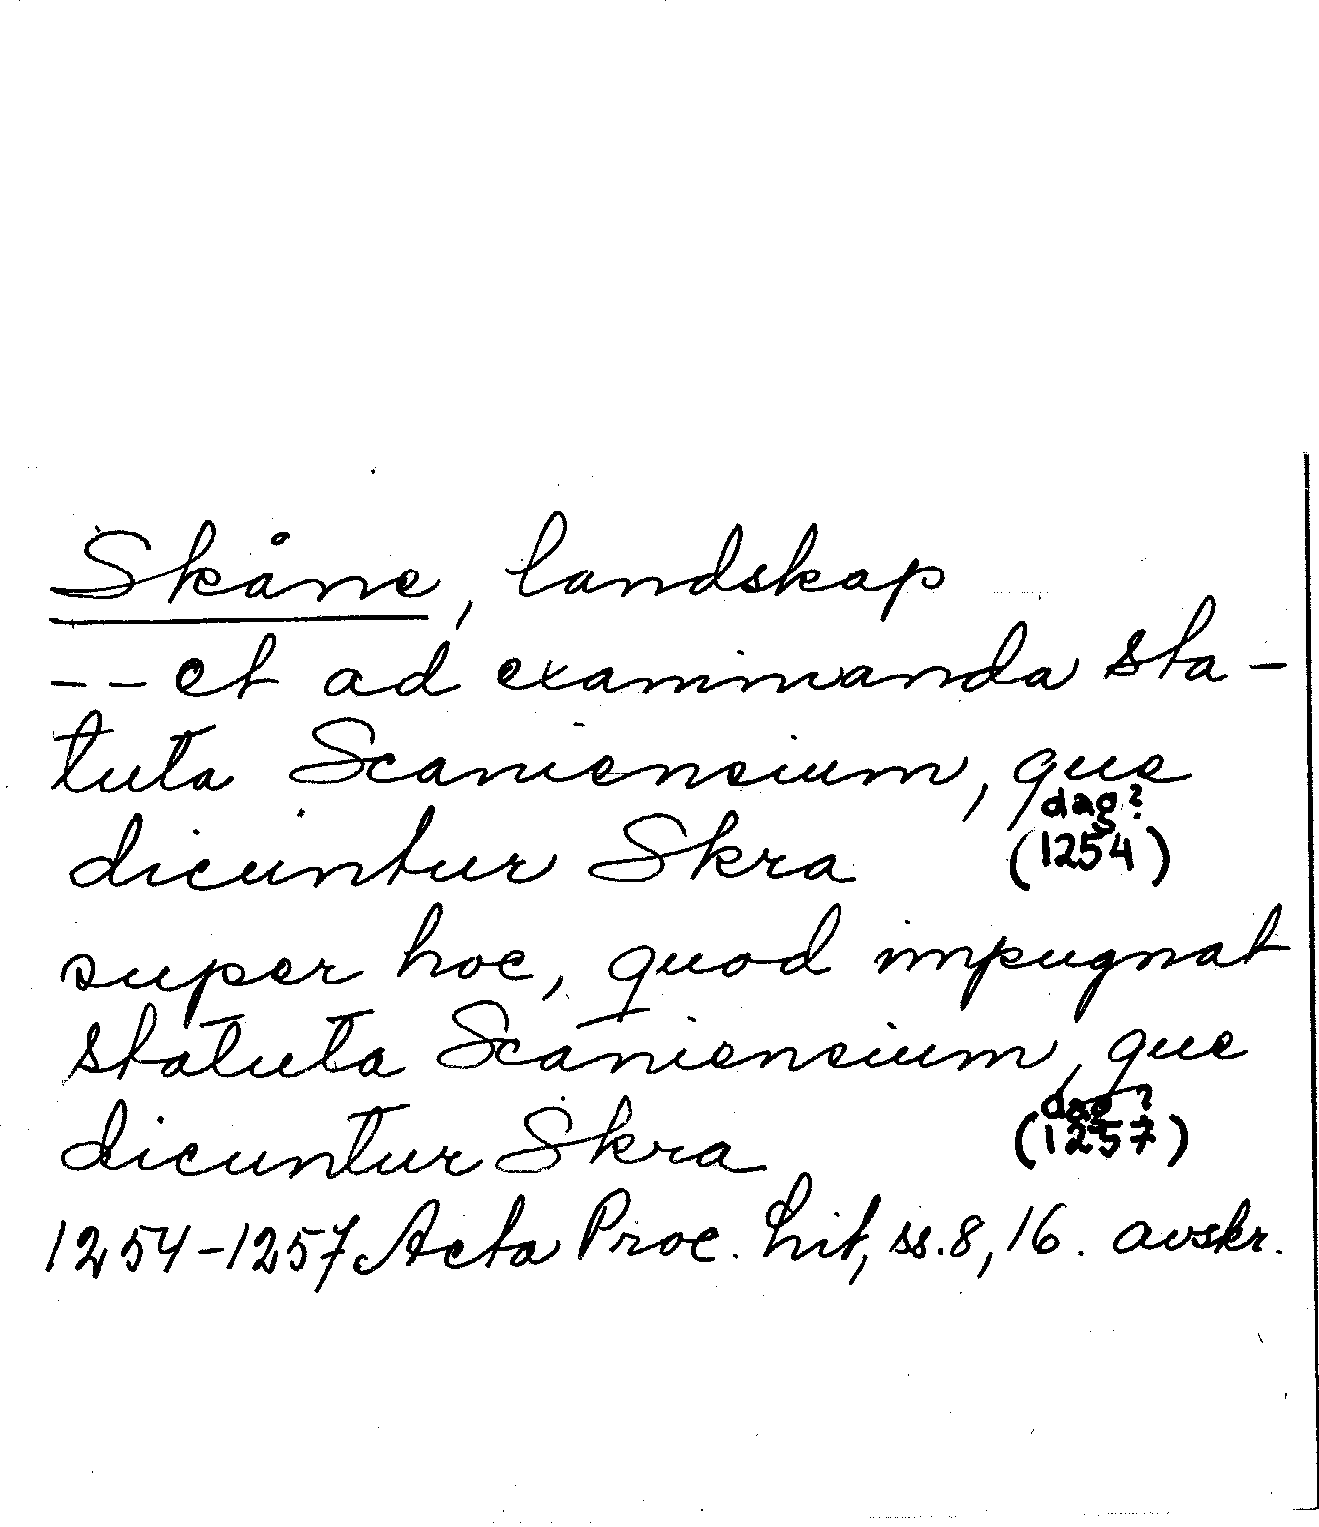 Skåne, landskap
-- et ad examinanda sta-
tuta Scaniensium, que
dag?
dicuntur Skra (1254)
super hoc, quod impugnat
statuta Scaniensium, que
dag?
dicuntur Skra (1257)
1254-1257 Acta Proc. Lit, ss. 8, 16. avskr.